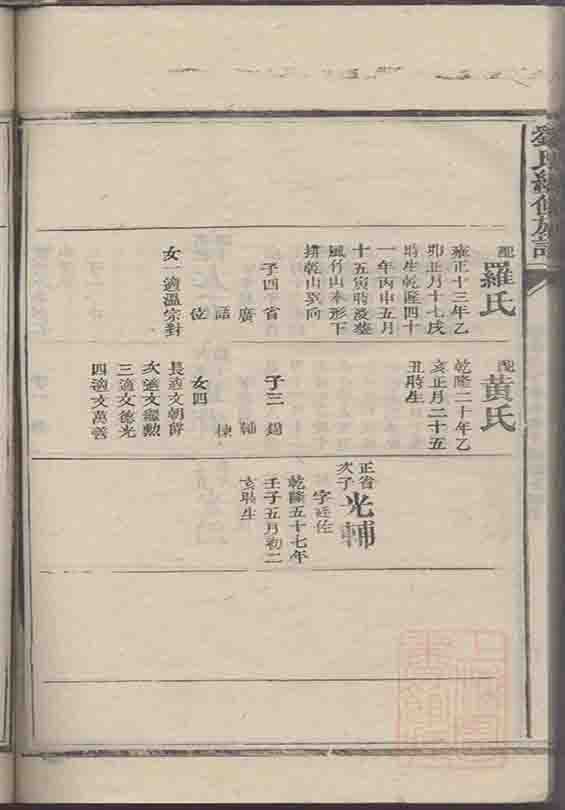 氏續修族譜
配羅氏
雍正十三年乙
卯正月十七戌
時生乾隆四十
一年丙申五月
十五寅時歿葬
風竹山本形下
耕乾山巽向
子四 省
廣
語
位
女一適溫宗對
配黃氏
乾隆二十年乙
亥正月二十五
丑時生
子三 錫
輔
棟
女四
長適文朝
次適文繼勲
三適文德光
四適文萬善
正省
次子光輔
字廷佐
乾隆五十七年
壬子五月初二
亥時生